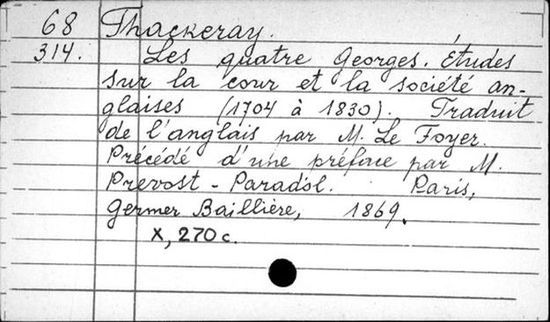 68 Thackeray.
314. Les quatre Georges. Études
sur la cour et la société an-
glaises (1704 à 1830). Traduit
de l'anglais par M. Le Foyer.
Précédé d'une préface par M.
Prevost-Paradol. Paris,
Germer Baillière, 1869.
X, 270 c.